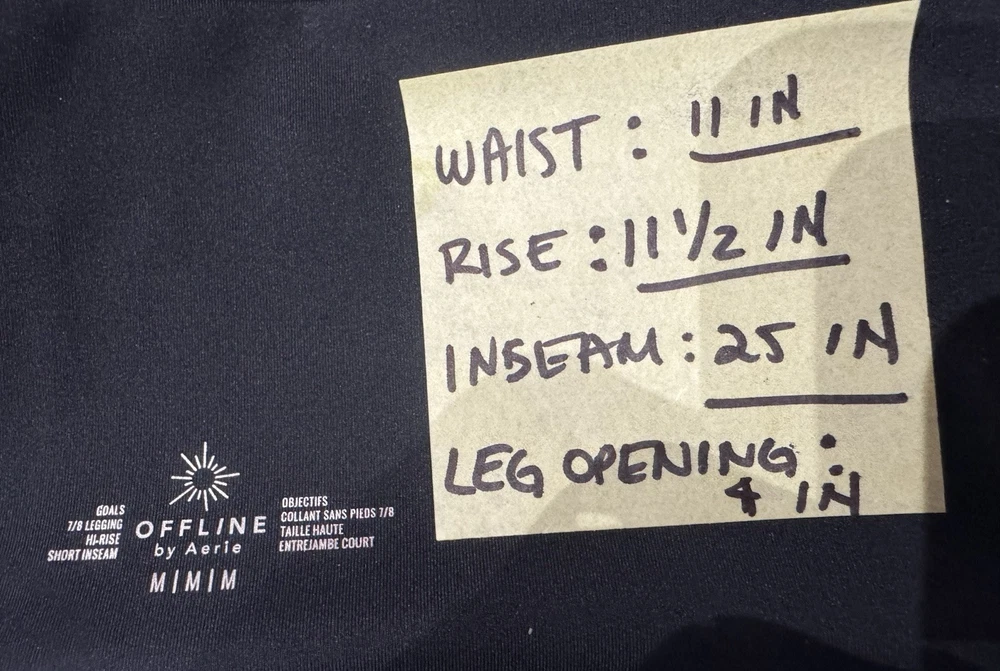 WAIST : 11 IN
RISE : 11 1/2 IN
INSEAM : 25 IN
LEG OPENING :
4 IN
GOALS
7/8 LEGGING
HI-RISE
SHORT INSEAM
OFFLINE
by Aerie
M|M|M
OBJECTIFS
COLLANT SANS PIEDS 7/8
TAILLE HAUTE
ENTREJAMBE COURT